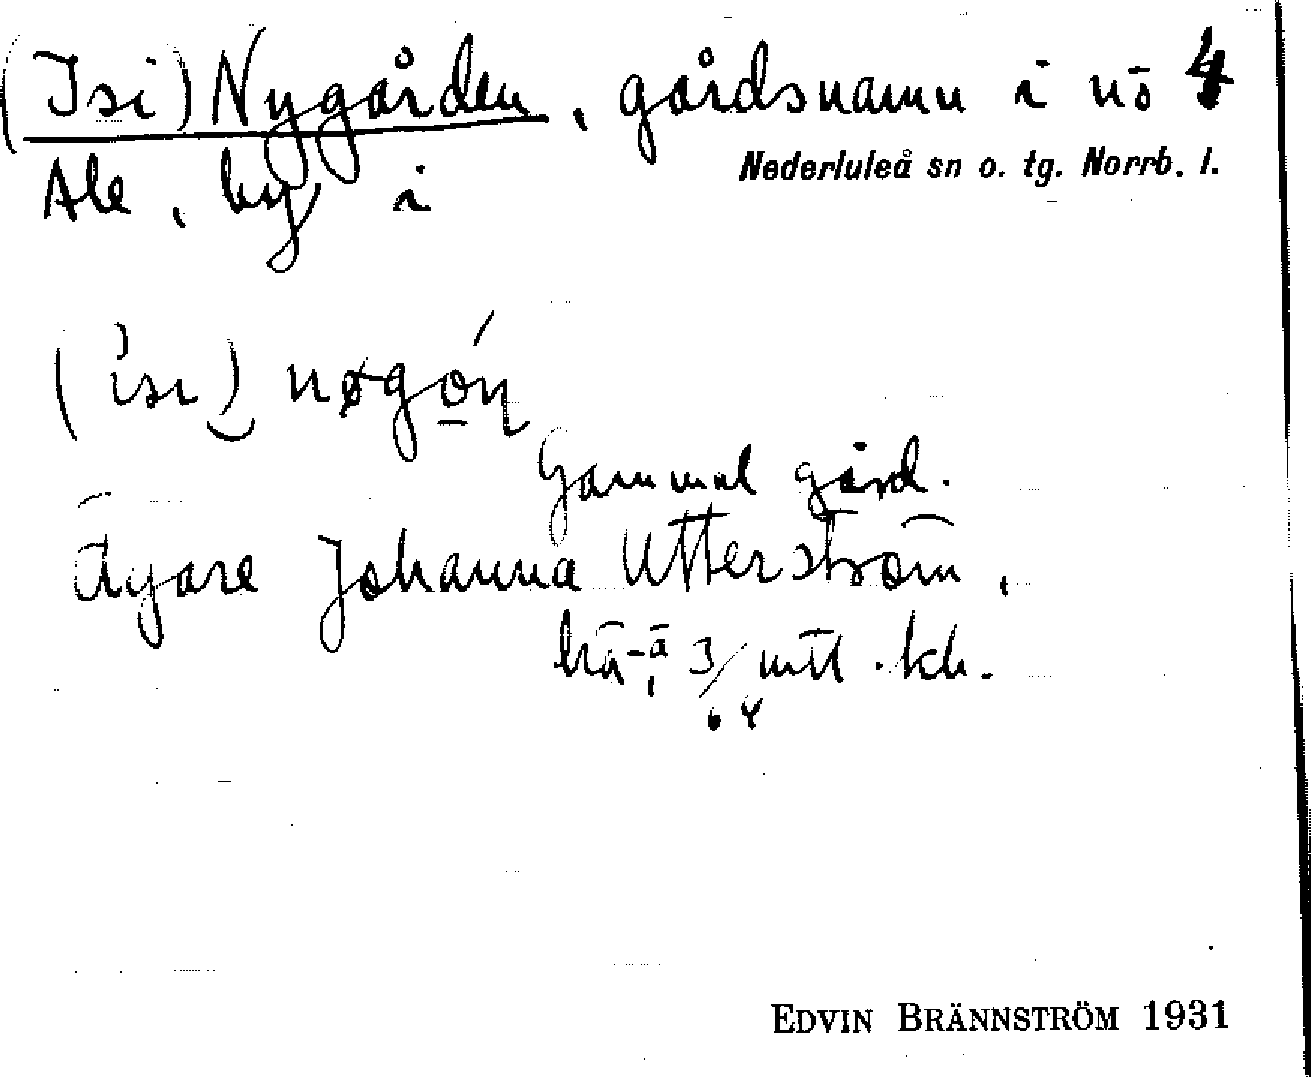 (Isi) Nygården, gårdsnamn i nö 4
Nederluleå sn o. tg. Norrb. l.
Ale, by i
(isi) nøgo̲n
Gammal gård.
Ägare Johanna Utterström.
3/ mtl . kh.
EDVIN BRÄNNSTRÖM 1931